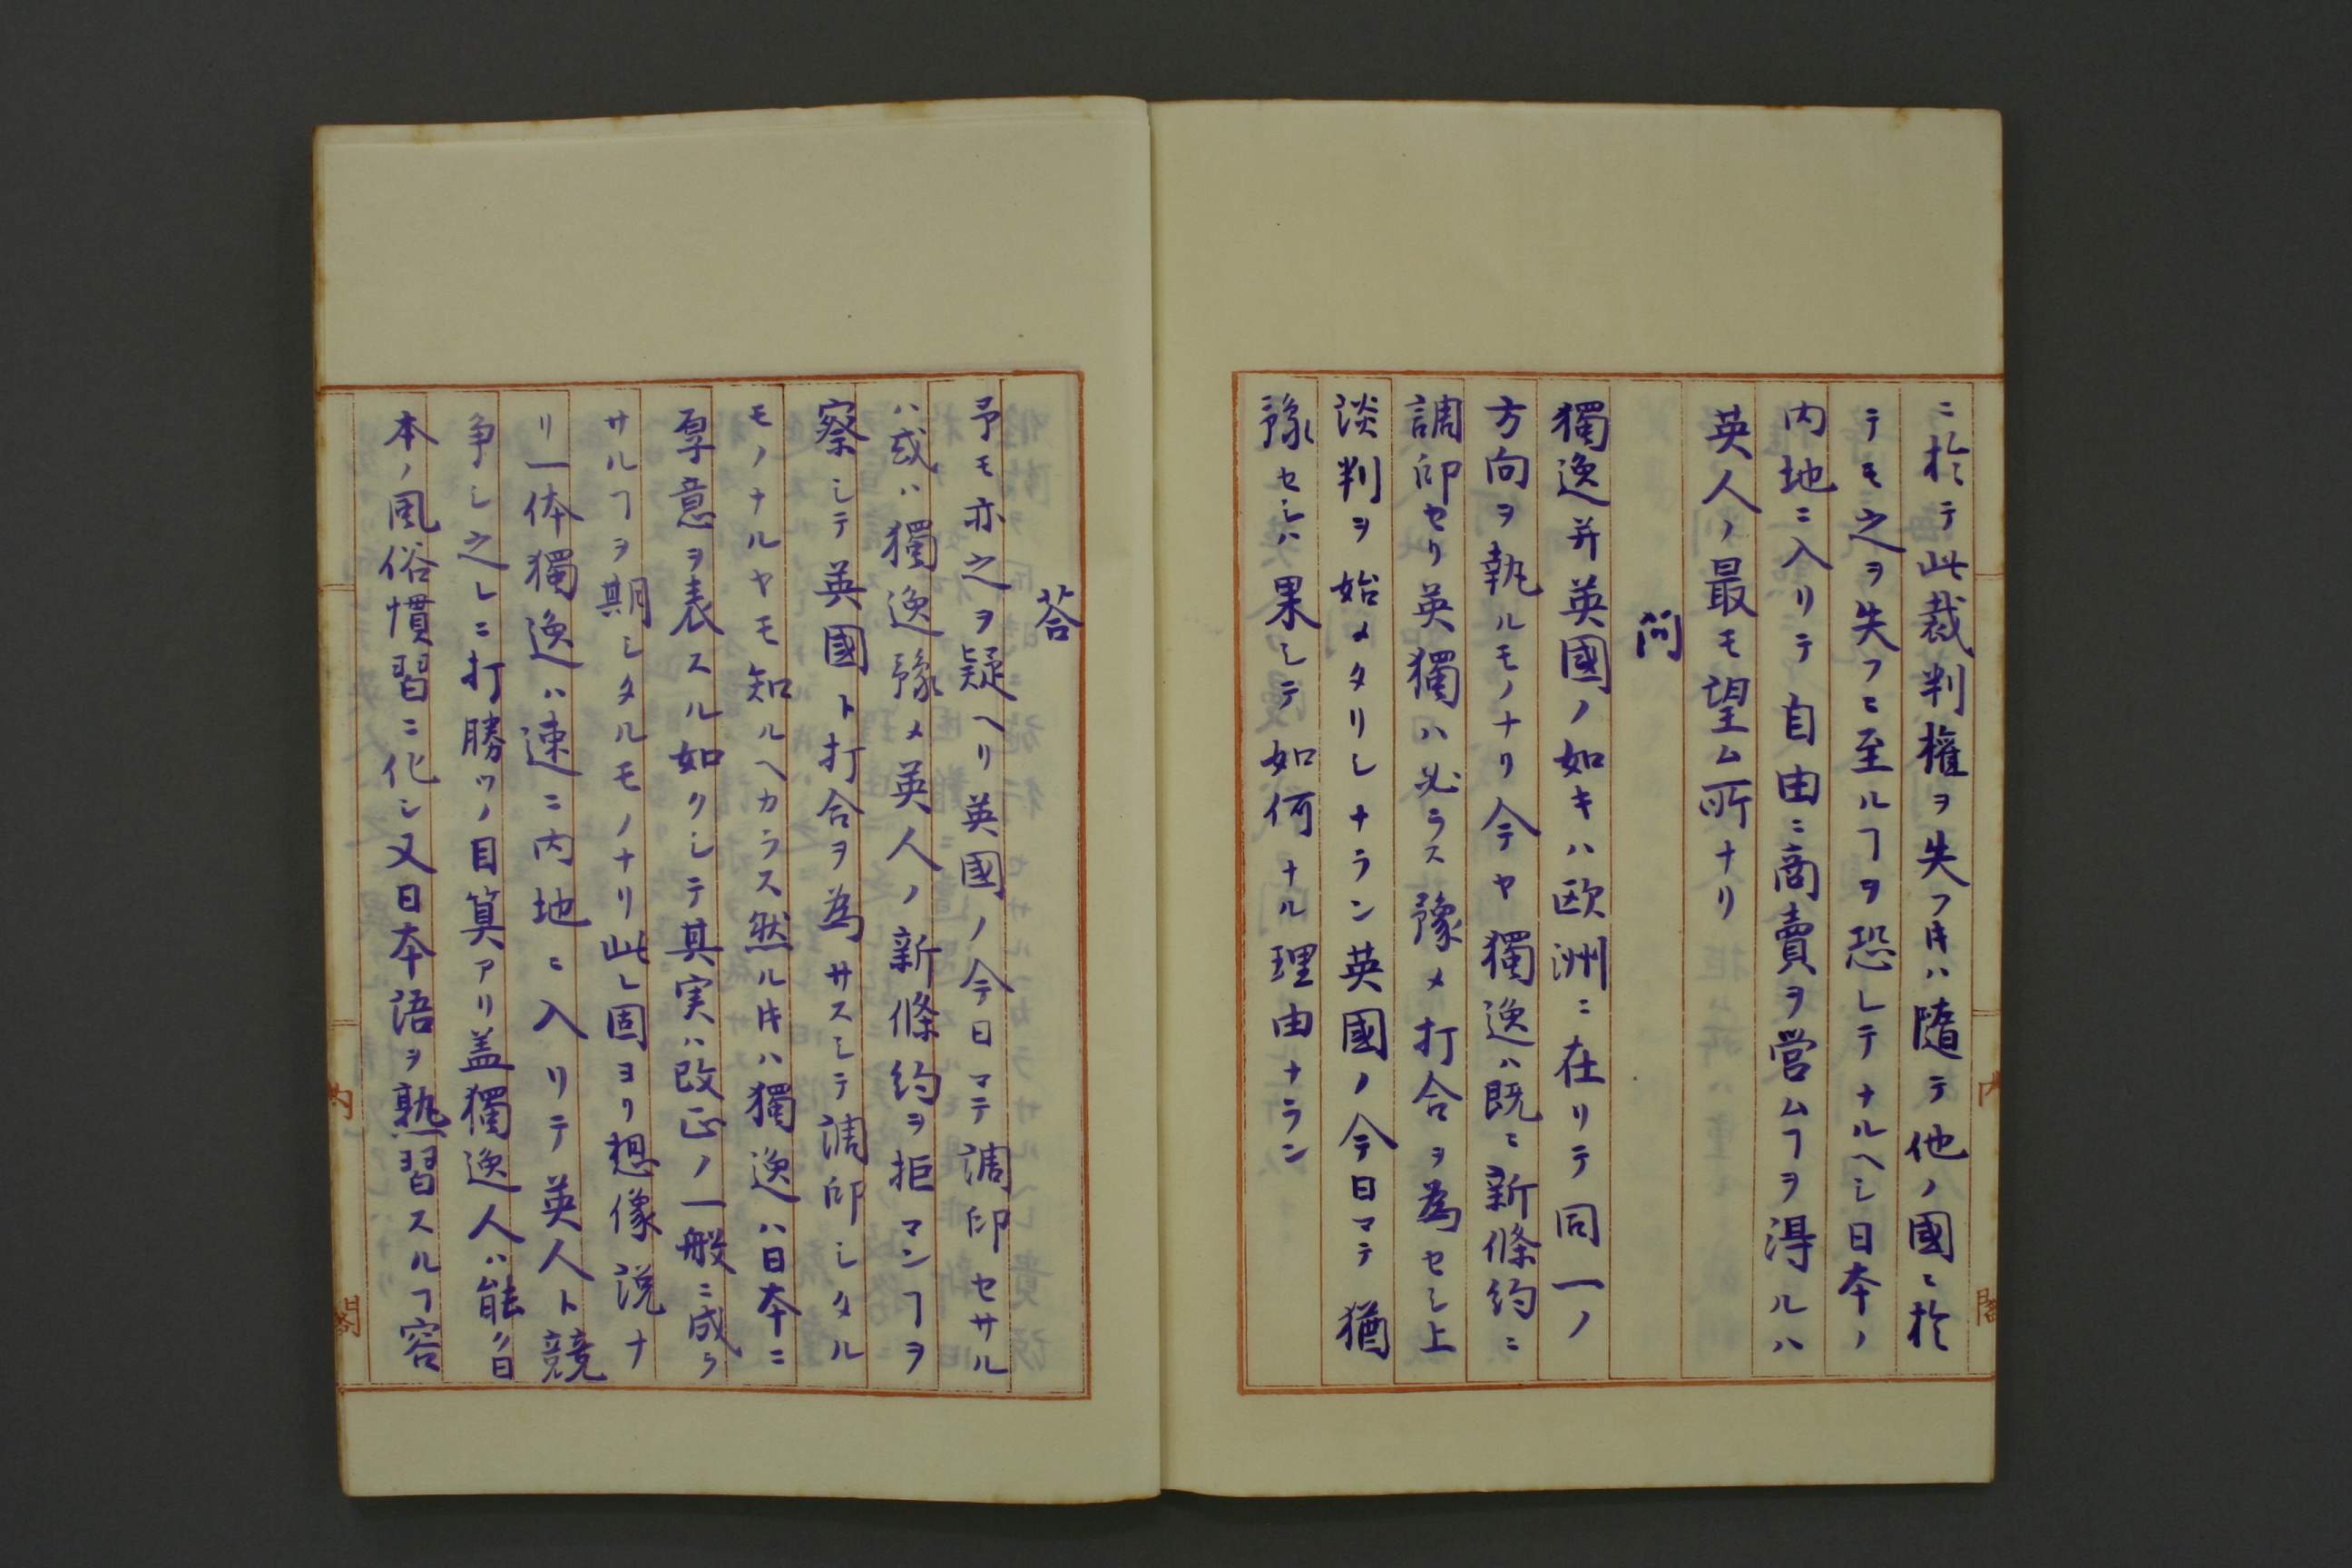 ニ於テ此裁判権ヲ失フ𪜈ハ隨テ他ノ國ニ於
テモ之ヲ失フニ至ルヿヲ恐レテナルヘシ日本ノ
内地ニ入リテ自由ニ商賣ヲ営ムヿヲ得ルハ
英人ノ最モ望ム所ナリ
問
獨逸并英國ノ如キハ欧洲ニ在リテ同一ノ
方向ヲ執ルモノナリ今ヤ獨逸ハ既ニ新條約ニ
調印セリ英獨ハ必ラス豫メ打合ヲ為セシ上
談判ヲ始メタリシナラン英國ノ今日マテ猶
豫セシハ果シテ如何ナル理由ナラン
答
予モ亦之ヲ疑ヘリ英國ノ今日マテ調印セサル
ハ或ハ獨逸豫メ英人ノ新條約ヲ拒マンヿヲ
察シテ英國ト打合ヲ為サスシテ調印シタル
モノナルヤモ知ルヘカラス然ル𪜈ハ獨逸ハ日本ニ
厚意ヲ表スル如クシテ其実ハ改正ノ一般ニ成ラ
サルヿヲ期シタルモノナリ此レ固ヨリ想像説ナ
リ一体獨逸ハ速ニ内地ニ入リテ英人ト競
争シ之レニ打勝ツノ目算アリ盖獨逸人ハ能ク日
本ノ風俗慣習ニ化シ又日本語ヲ熟習スルヿ容
内
閣
内
閣